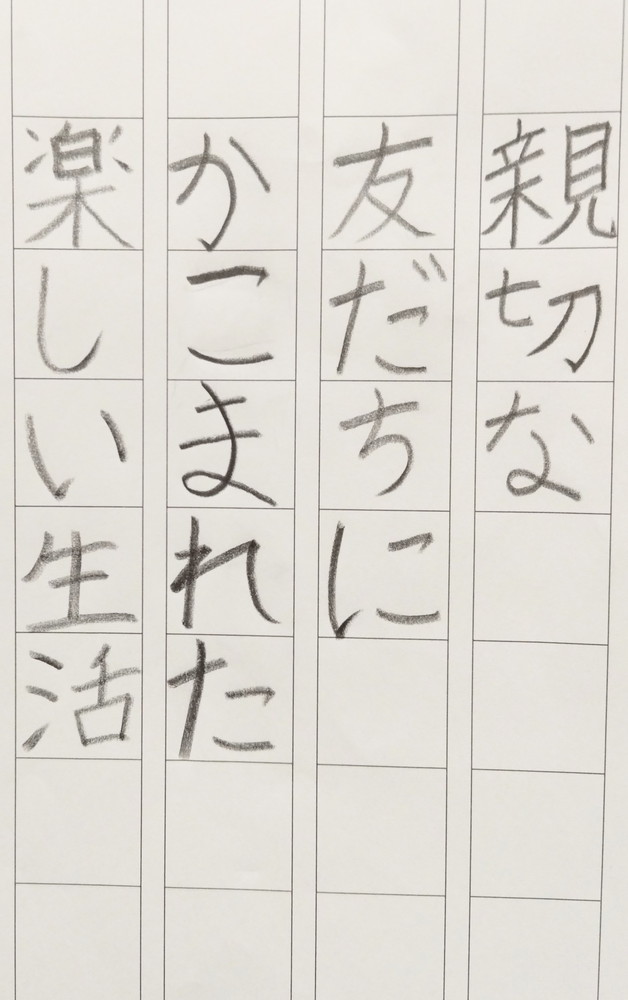 親切な
友だちに
かこまれた
楽しい生活